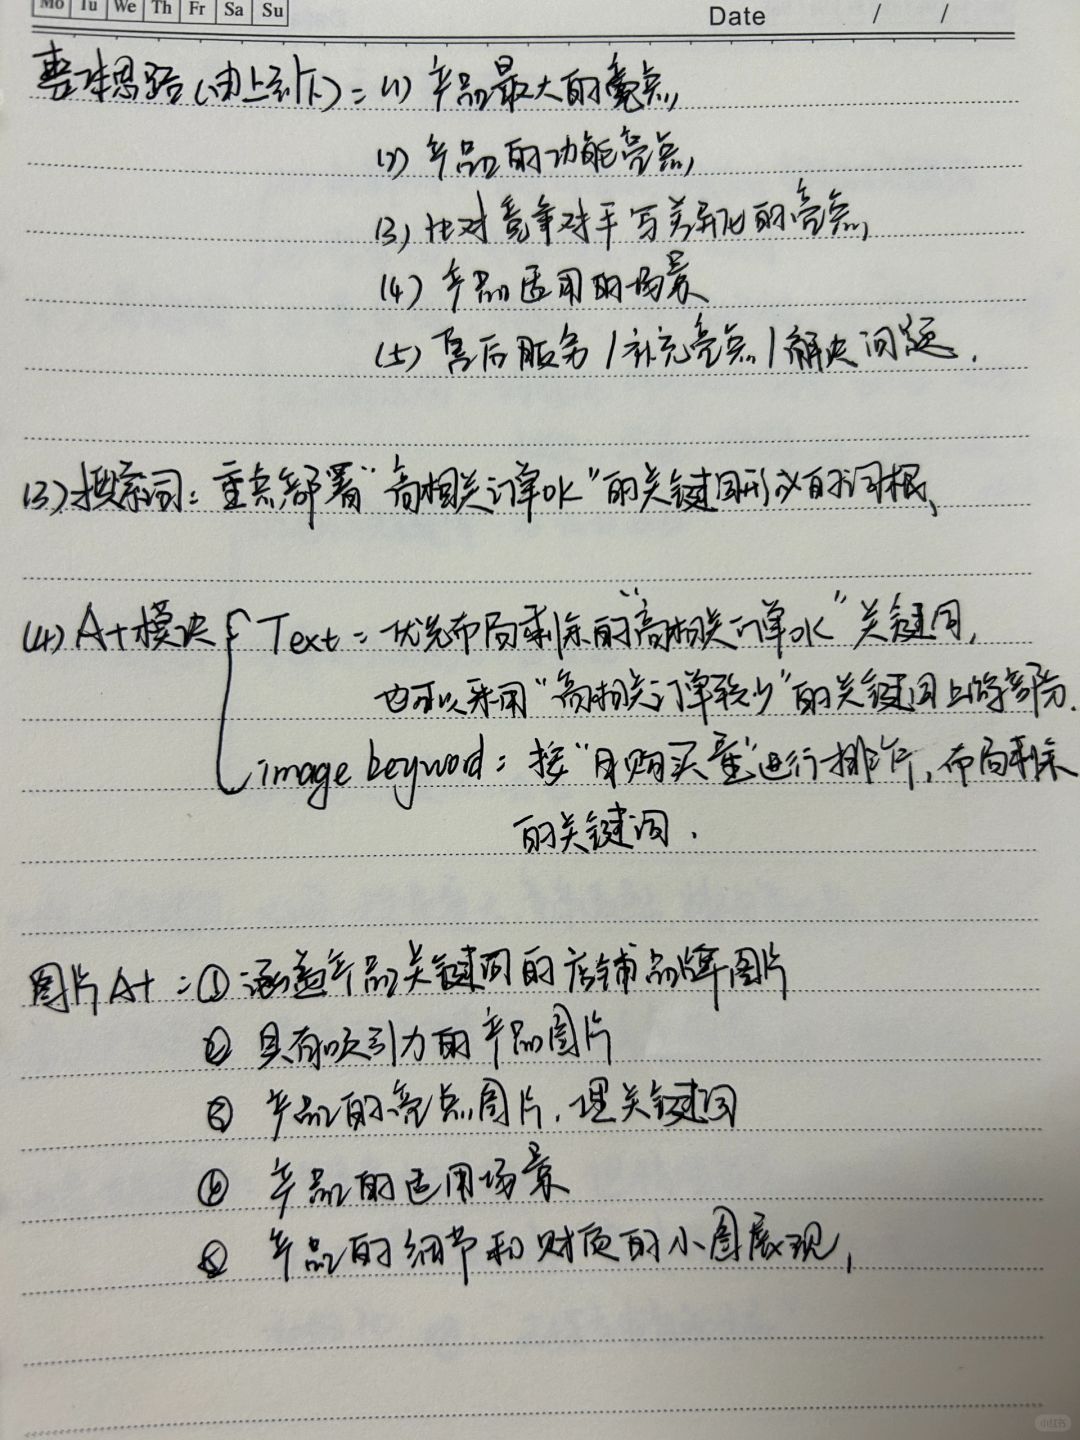 Mo Tu We Th Fr Sa Su
Date / /
整体思路(由上到下):(1) 产品最大的亮点,
(2) 产品的功能亮点,
(3) 比对竞争对手写差异化的亮点,
(4) 产品适用的场景
(5) 售后服务/补充亮点/解决问题.
(3)搜索词:重点部署"高相关订单水"的关键词形成的词根,
(4) A+模块 Text:优先布局剩余的"高相关订单水"关键词,
也可以采用"高相关订单较少"的关键词上的部分.
image keyword:按"月购买量"进行排序,布局剩余
的关键词.
图片A+:① 涵盖产品关键词的店铺品牌图片
② 具有吸引力的产品图片
③ 产品的亮点图片.埋关键词
④ 产品的适用场景
⑤ 产品的细节和材质的小图展现,
小红书